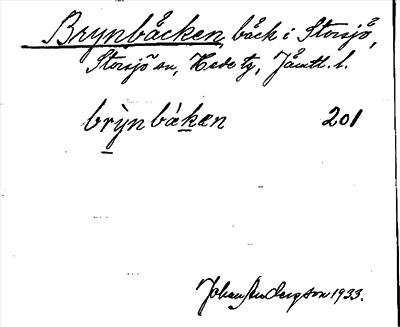 Brynbäcken, bäck i Storsjö,
Storsjö sn, Hede tg, Jämtl. l.
brỳn báken 201
Johan Andersson 1933.